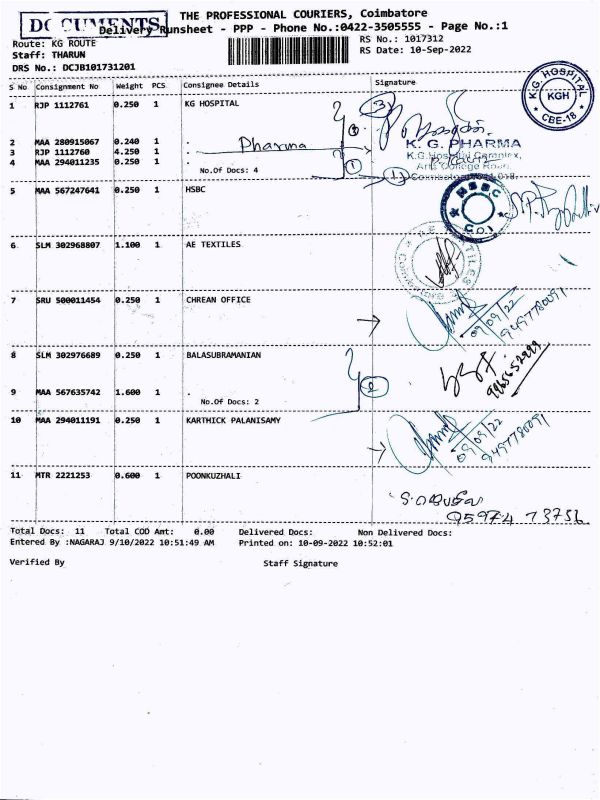 DOCUMENTS
THE PROFESSIONAL COURIERS, Coimbatore
Delivery Runsheet - PPP - Phone No.:0422-3505555 - Page No.:1
Route: KG ROUTE
RS No.: 1017312
Staff: THARUN
RS Date: 10-Sep-2022
DRS No.: DCJB101731201
S No Consignment No Weight PCS Consignee Details Signature
K.G. HOSPITAL
KGH
CBE-18
1 RJP 1112761 0.250 1 KG HOSPITAL
3
2 MAA 280915067 0.240 1 .
Pharma
K. G. PHARMA
3 RJP 1112760 4.250 1 .
K.G.Hospital Complex,
4 MAA 294011235 0.250 1 .
Arts College Road,
No.Of Docs: 4
Coimbatore-641 018.
5 MAA 567247641 0.250 1 HSBC
HSBC
6 SLM 302968807 1.100 1 AE TEXTILES
7 SRU 500011454 0.250 1 CHREAN OFFICE
09/09/22
9497780091
8 SLM 302976689 0.250 1 BALASUBRAMANIAN
9 MAA 567635742 1.600 1 .
2
No.Of Docs: 2
10 MAA 294011191 0.250 1 KARTHICK PALANISAMY
09/09/22
9497780091
11 MTR 2221253 0.600 1 POONKUZHALI
95974 73756
Total Docs: 11 Total COD Amt: 0.00 Delivered Docs: Non Delivered Docs:
Entered By :NAGARAJ 9/10/2022 10:51:49 AM Printed on: 10-09-2022 10:52:01
Verified By Staff Signature